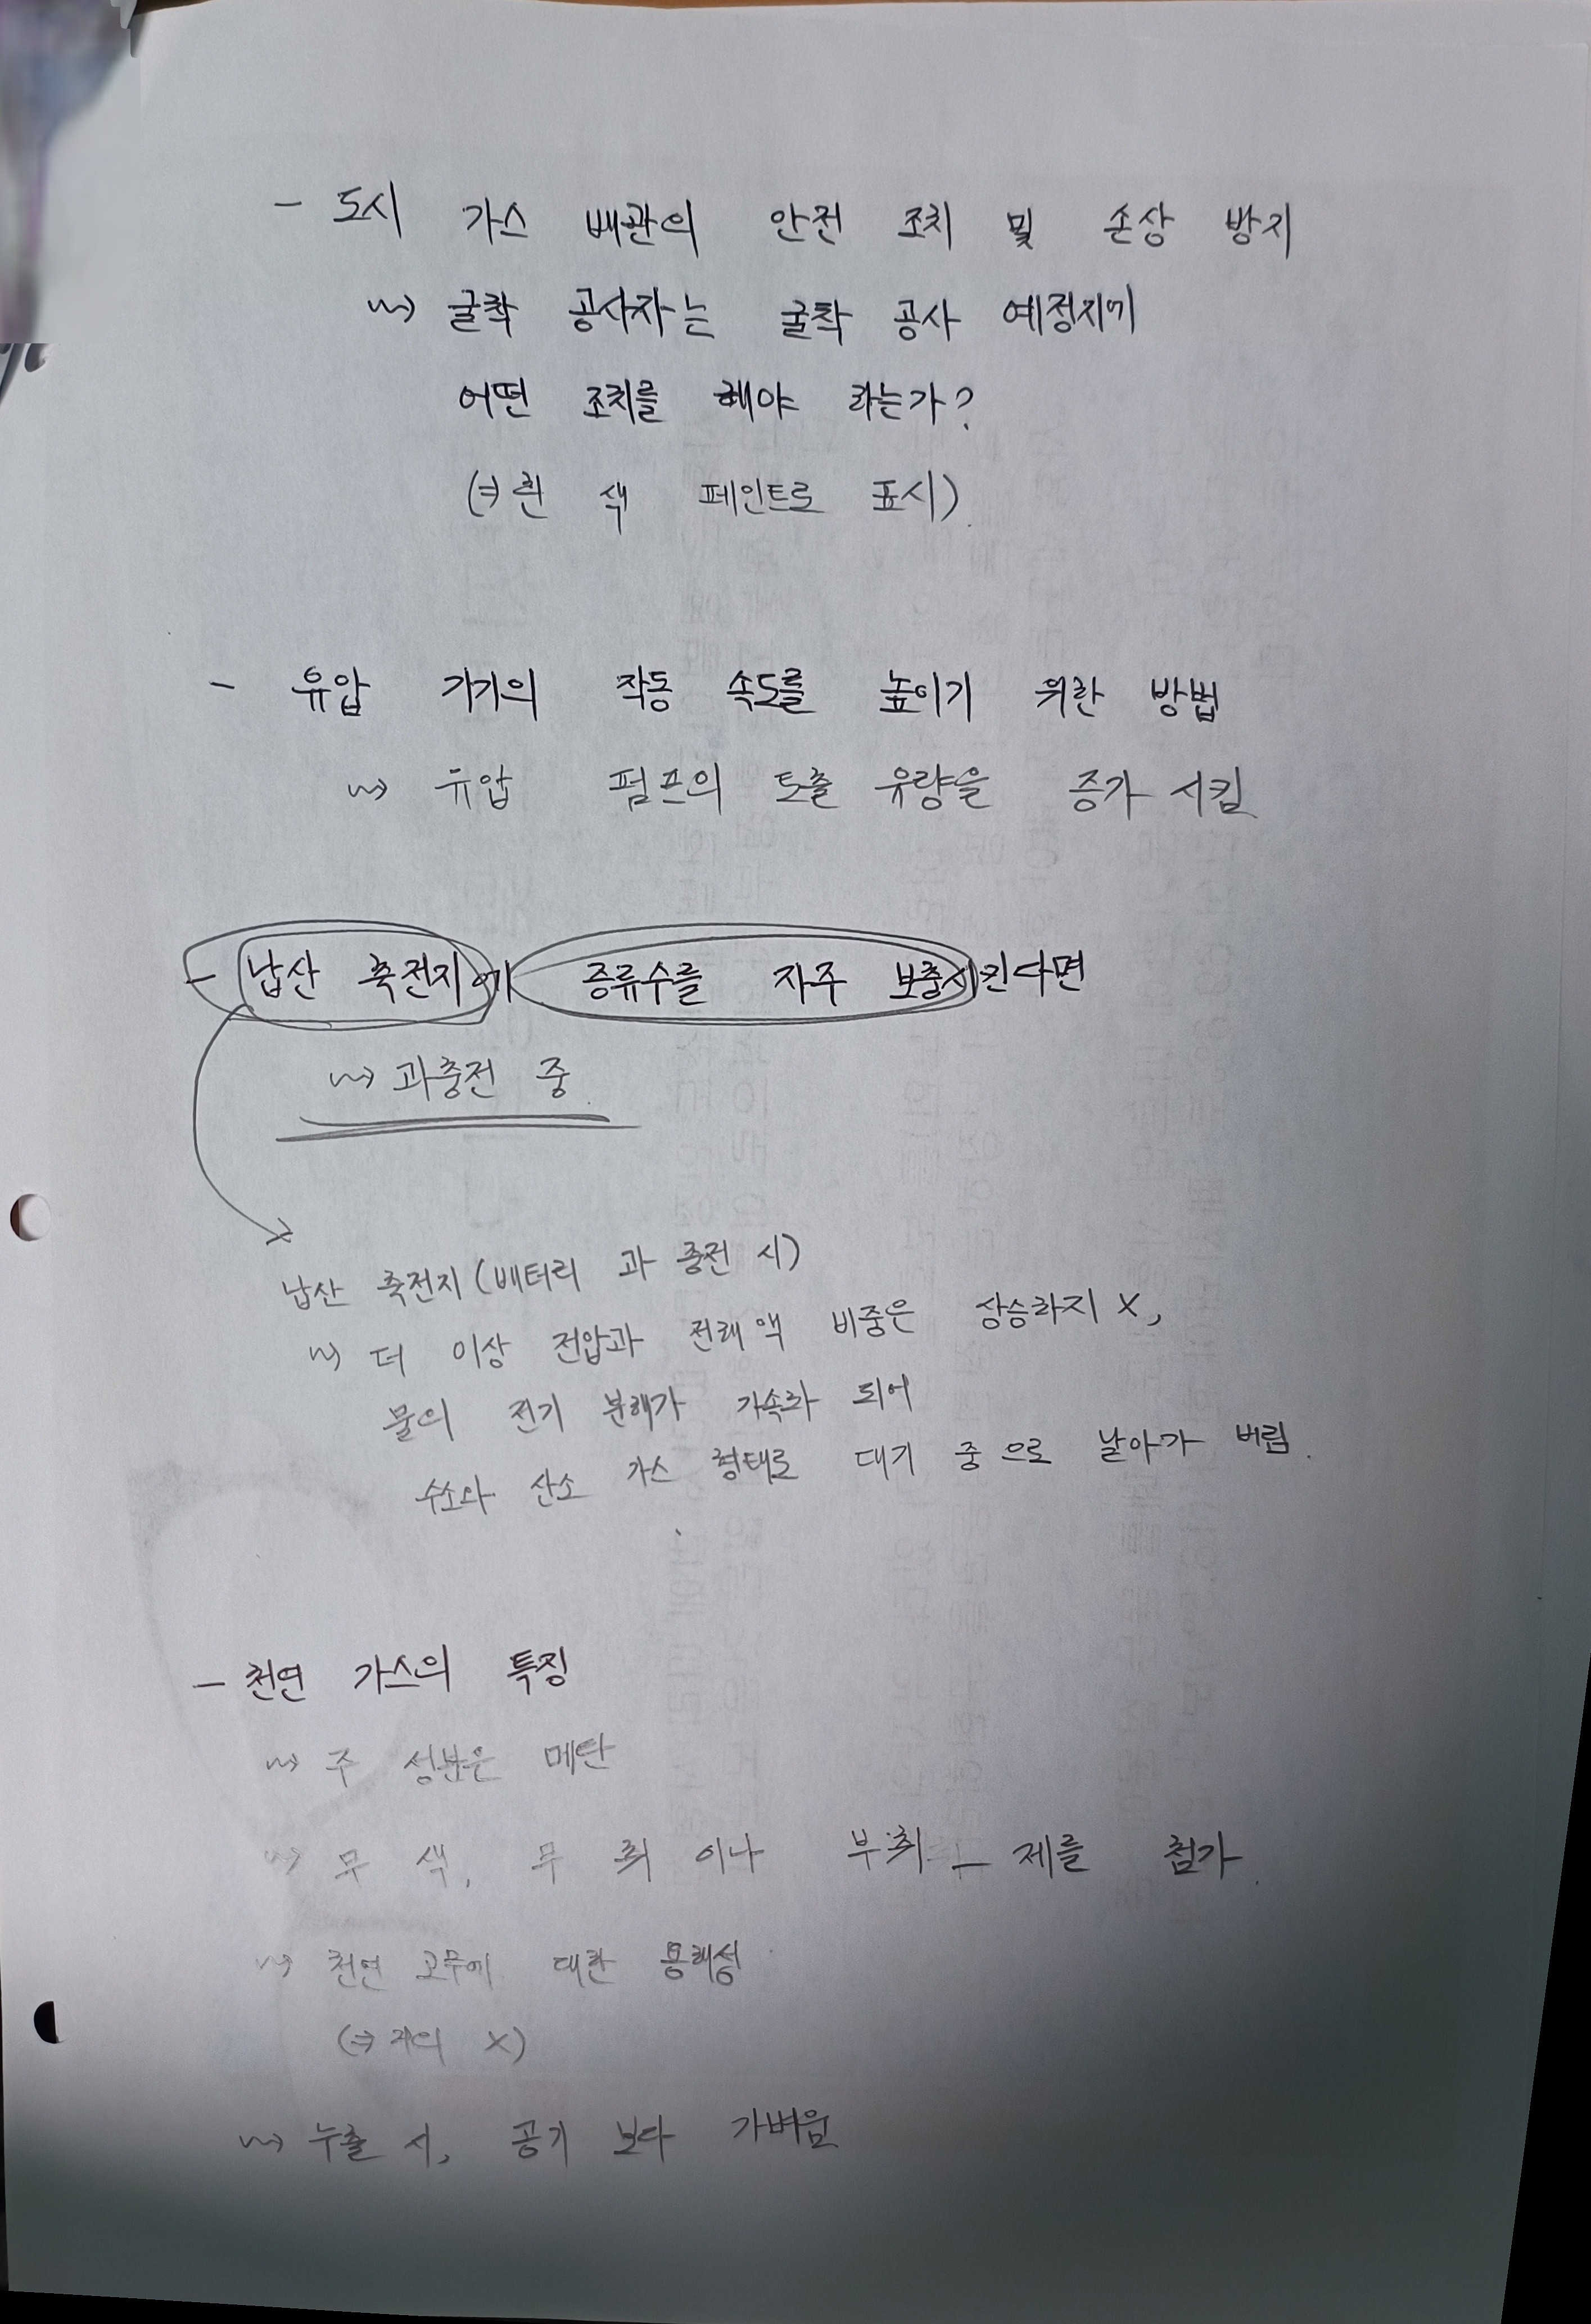 - 도시 가스 배관의 안전 조치 및 손상 방지
↝ 굴착 공사자는 굴착 공사 예정지에
어떤 조치를 해야 하는가?
(⇒ 흰 색 페인트로 표시)
- 유압 기기의 작동 속도를 높이기 위한 방법
↝ 유압 펌프의 토출 유량을 증가 시킴
- 납산 축전지에 증류수를 자주 보충시킨다면
↝ 과충전 중
납산 축전지 (배터리 과 충전 시)
↝ 더 이상 전압과 전해액 비중은 상승하지 X,
물의 전기 분해가 가속화 되어
수소와 산소 가스 형태로 대기 중으로 날아가 버림.
- 천연 가스의 특징
↝ 주 성분은 메탄
↝ 무 색, 무 취 이나 부취 제를 첨가.
↝ 천연 고무에 대한 용해성
(⇒ 거의 X)
↝ 누출 시, 공기 보다 가벼움